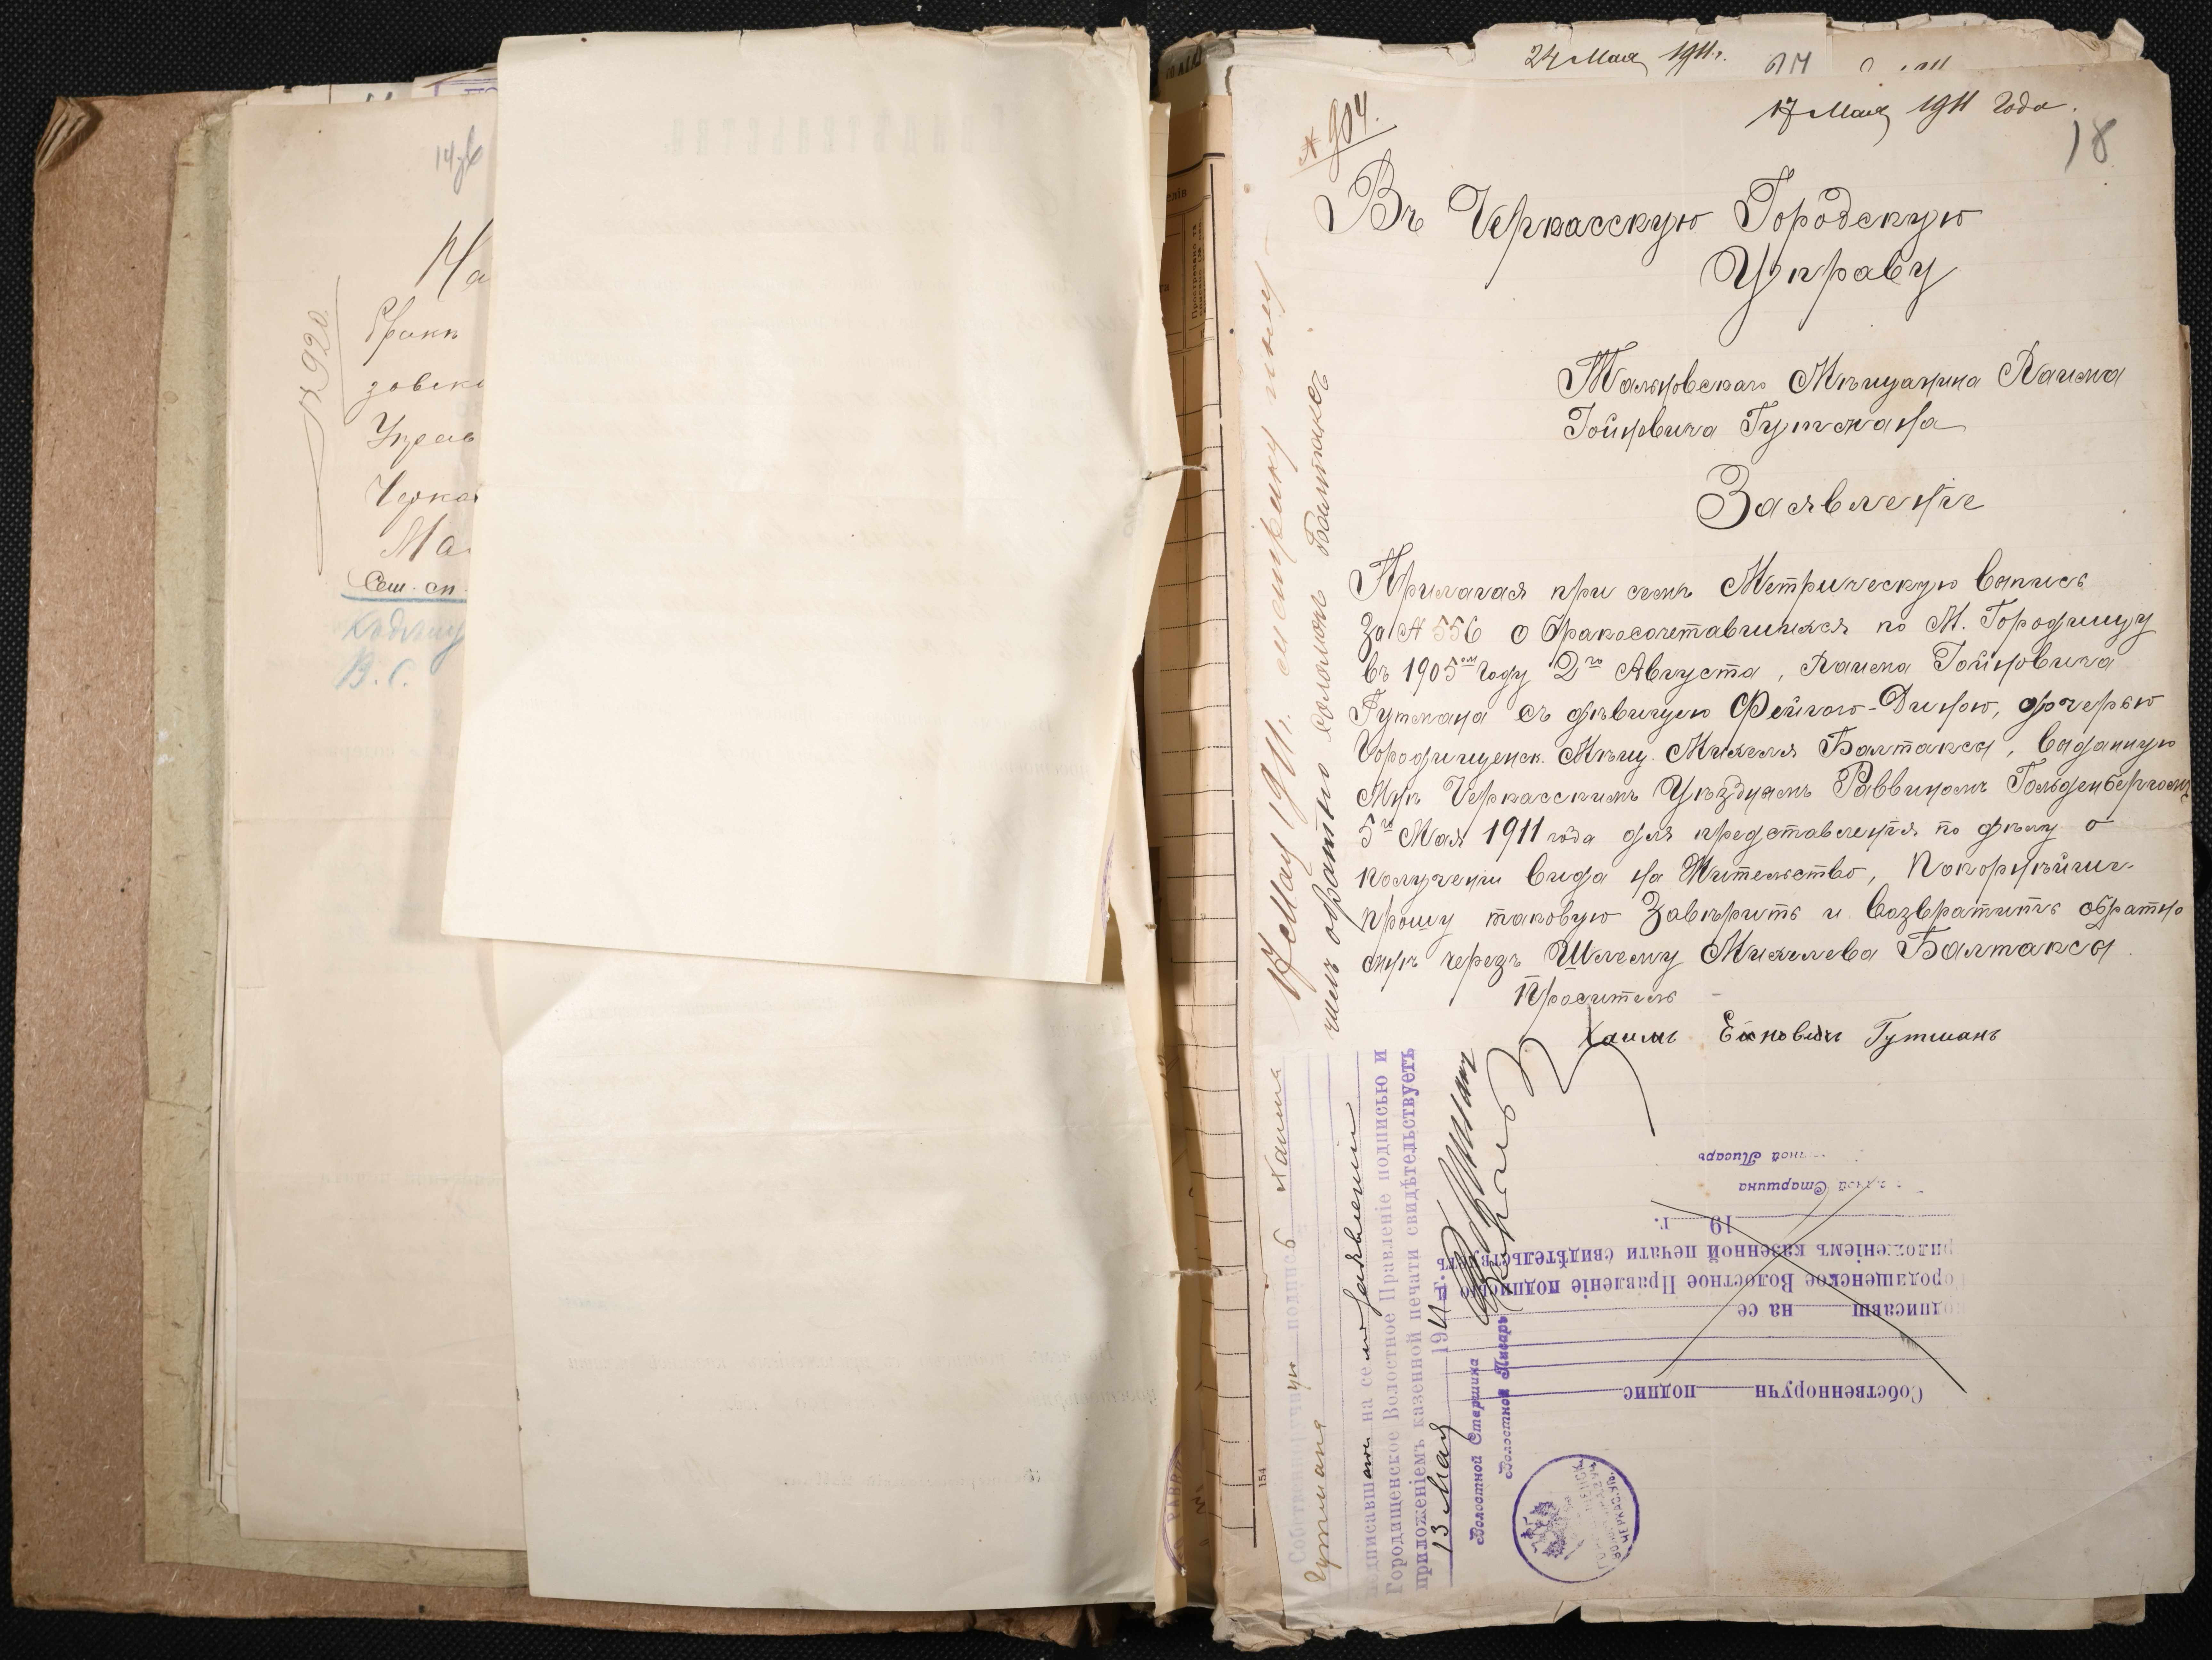 24 Мая 1911 г.
17 Мая 1911 Года.
18
№ 904.
Въ Черкасскую Городскую
Управу
Мѣщанина Хаима
Гойновича Гутмана
Заявленіе
Прилагая при семъ Метрическую выпись
За № 556 о бракосочетавшихся по М. Городищу
въ 1905ом Году 2го Августа, Хаима Гойновича
Гутмана съ дѣвицею Фейгою-Диною, дочерью
Городищенск. Мѣщ. Михеля Балтаксы, выданную
Мнѣ Черкасскимъ Уѣзднымъ Раввиномъ Гольденбергомъ
5го Мая 1911 года для представленія по дѣлу о
полученіи вида на Жительство, Покорнѣйше
прошу таковую Завѣрить и возвратить обратно
мнѣ черезъ Шлему Михелева Балтаксы.
Проситель
Хаимъ Гутманъ
17 Мая 1911 г.
обратно Балтаксъ
Собственноручную подпись Хаима
Гутмана
подписавшаго на семъ заявленіи
Городищенское Волостное Правленіе подписью и
приложеніемъ казенной печати свидѣтельствуетъ
13 Мая 1911 г.
Волостной Старшина
Волостной Писарь
Собственноручн подпис
подписавш на се
Городищенское Волостное Правленіе подписью и
приложеніемъ казенной печати свидѣтельствуетъ
19 г.
Старшина
Писарь
154
№ 920.
На
зовско
Управ
Черкас
Ма
В. С.